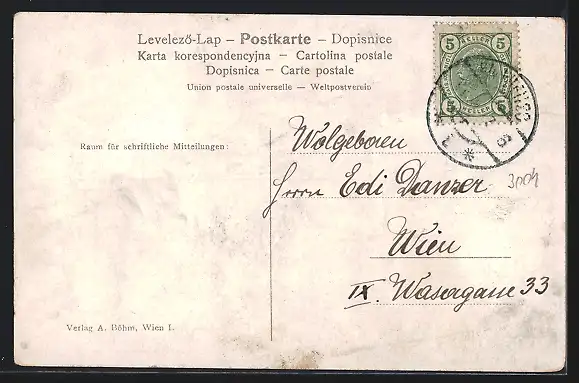 Levelező-Lap – Postkarte – Dopisnice
Karta korespondencyjna – Cartolina postale
Dopisnica – Carte postale
Union postale universelle – Weltpostverein
5 HELLER 5
5 HELLER 5
Raum für schriftliche Mitteilungen:
Wolgeboren
Herrn Edi Danzer
3004
Wien
IX. Wasagasse 33
Verlag A. Böhm, Wien I.